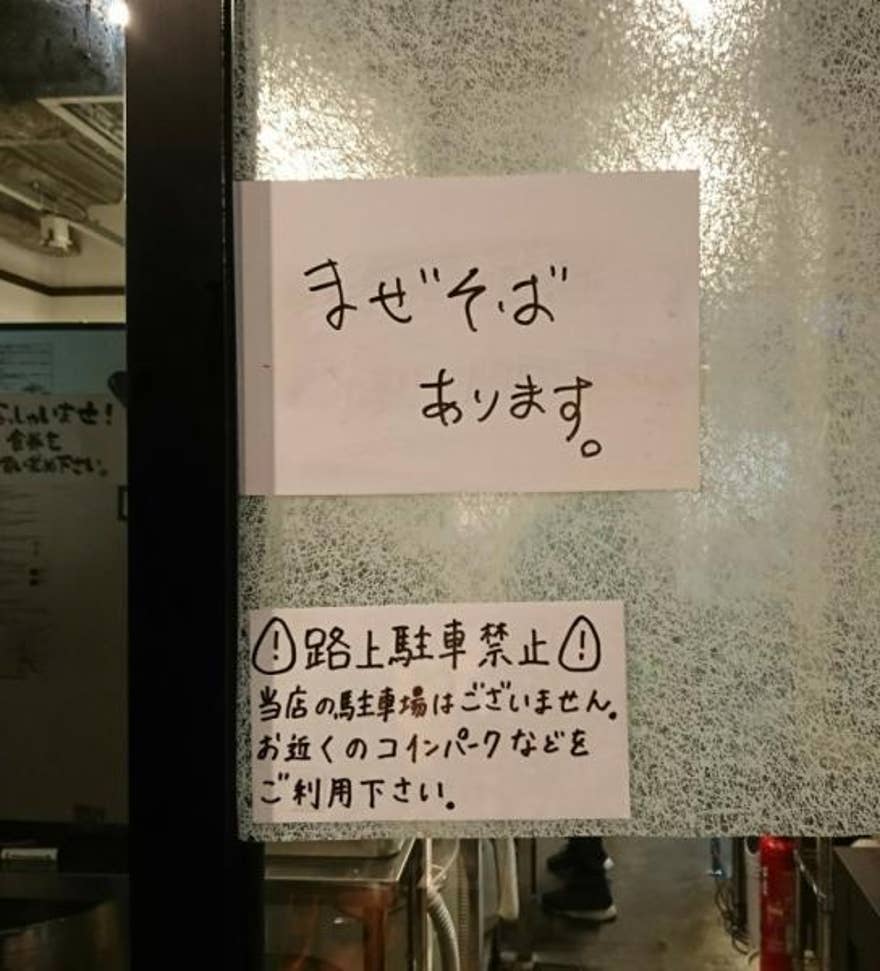 まぜそば
あります。
!路上駐車禁止!
当店の駐車場はございません。
お近くのコインパークなどを
ご利用下さい。
っしゃいませ!
下さい。